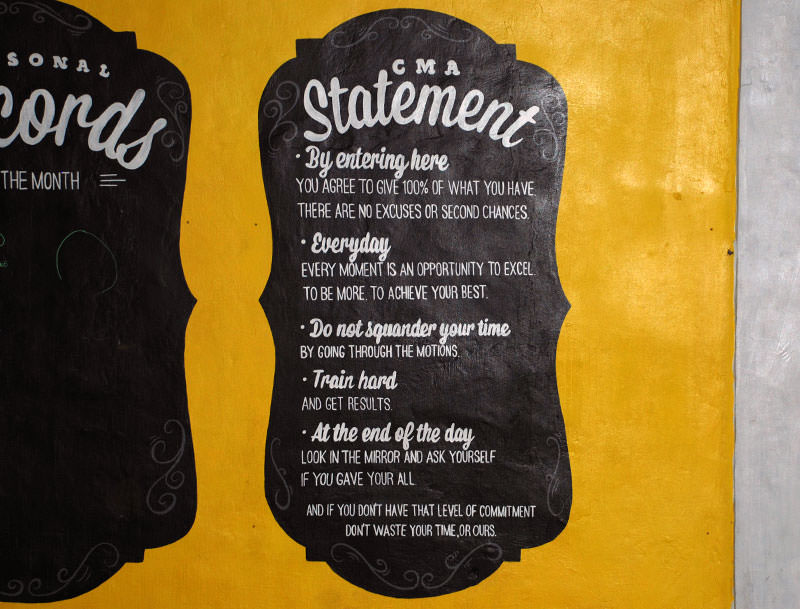 SONAL
cords
THE MONTH
CMA
Statement
• By entering here
YOU AGREE TO GIVE 100% OF WHAT YOU HAVE.
THERE ARE NO EXCUSES OR SECOND CHANCES.
• Everyday
EVERY MOMENT IS AN OPPORTUNITY TO EXCEL.
TO BE MORE. TO ACHIEVE YOUR BEST.
• Do not squander your time
BY GOING THROUGH THE MOTIONS.
• Train hard
AND GET RESULTS.
• At the end of the day
LOOK IN THE MIRROR AND ASK YOURSELF
IF YOU GAVE YOUR ALL.
AND IF YOU DON'T HAVE THAT LEVEL OF COMMITMENT
DON'T WASTE YOUR TIME, OR OURS.